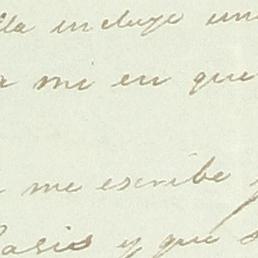 lla incluye un
a mi en que
me escribe
asis y que